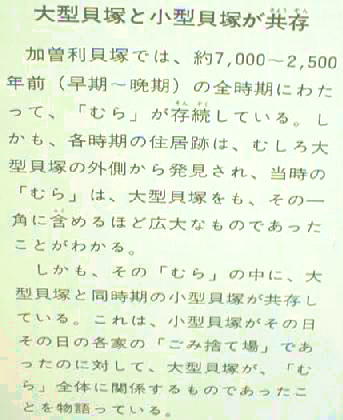 大型貝塚と小型貝塚が共存
加曽利貝塚では、約7,000～2,500
年前（早期～晩期）の全時期にわた
って、「むら」が存続している。し
かも、各時期の住居跡は、むしろ大
型貝塚の外側から発見され、当時の
「むら」は、大型貝塚をも、その一
角に含めるほど広大なものであった
ことがわかる。
しかも、その「むら」の中に、大
型貝塚と同時期の小型貝塚が共存し
ている。これは、小型貝塚がその日
その日の各家の「ごみ捨て場」であ
ったのに対して、大型貝塚が、「む
ら」全体に関係するものであったこ
とを物語っている。